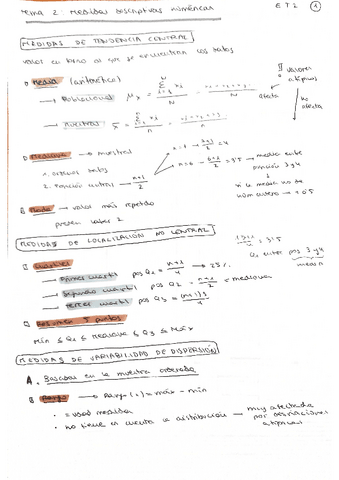 Tema 2. Medidas descriptivas numéricas ET1 1
MEDIDAS DE TENDENCIA CENTRAL
valor en torno al que se encuentran los datos
Media (aritmética)
→ Poblacional μx = Σ xi / N
→ muestral x̄ = Σ xi / n
!! valores atípicos
afecta
no afecta
Mediana → muestral
1. ordenar datos
2. posición central → n+1/2
n=7 → 7+1/2 = 4
n=6 → 6+1/2 = 3'5 → media entre posición 3 y 4
Moda → valor más repetido
pueden haber 2
MEDIDAS DE LOCALIZACIÓN NO CENTRAL
Cuartiles
Primer cuartil pos Q1 = n+1/4 → 25%
Segundo cuartil pos Q2 = n+1/2 = mediana
Tercer cuartil pos Q3 = (n+1)3/4
= 3'5
Q1 entre pos 3 y 4
media
Resumen 5 puntos
Mín ≤ Q1 ≤ Mediana ≤ Q3 ≤ Máx
MEDIDAS DE VARIABILIDAD DE DISPERSIÓN
A. Basadas en la muestra ordenada
Rango → Rang(x) = máx - mín
· = unidad medida
· no tiene en cuenta la distribución — muy afectada por observaciones atípicas